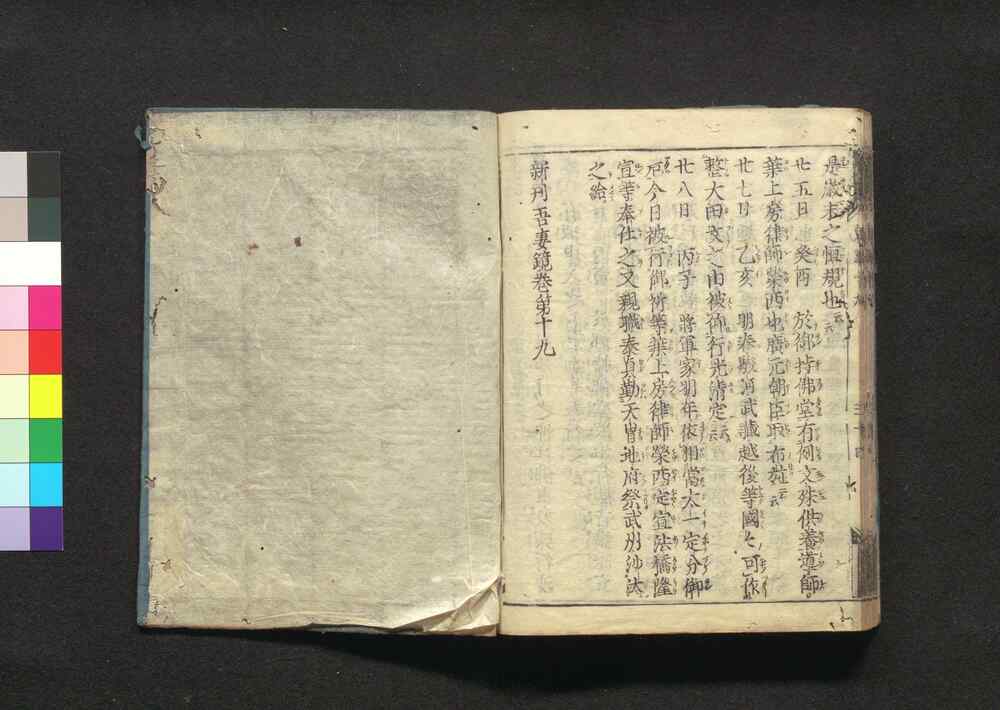 是歳末之恒規也云云
廿五日 癸酉 於御持佛堂有例文殊供養導師
葉上房律師榮西也廣元朝臣取布施云云
廿七日 乙亥 明春駿河武藏越後等國々可作
整大田文之由被仰行光清定云云
廿八日 丙子 將軍家明年依相當太一定分御
厄今日被行御祈等葉上房律師榮西定宣法橋隆
宣等奉仕之又親職泰貞勤天曹地府祭武州沙汰
之給
新刊吾妻鏡卷第十九